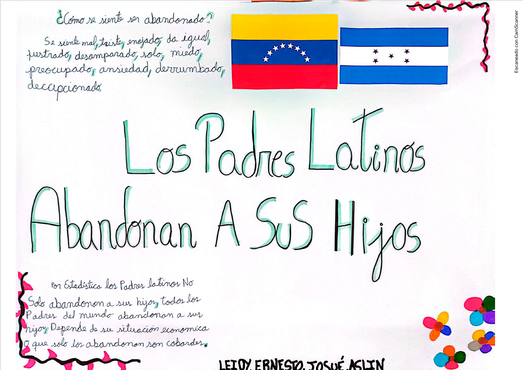 ¿Cómo se siente ser abandonado?
Se siente mal, triste, enojado, da igual,
frustrado, desamparado, solo, miedo,
preocupado, ansiedad, derrumbado,
decepcionado
Los Padres Latinos
Abandonan A Sus Hijos
en Estadística los Padres latinos No
Solo abandonan a sus hijos, todos los
Padres del mundo abandonan a sus
hijos Depende de su situación economica
o que solo los abandonan son cobardes.
LEIDY, ERNESTO, JOSUÉ, ASLIN
Escaneado con CamScanner